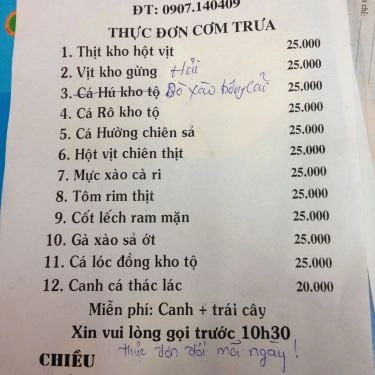 ĐT: 0907.140409
THỰC ĐƠN CƠM TRƯA
1. Thịt kho hột vịt 25.000
2. Vịt kho gừng Hải 25.000
3. Cá Hú kho tộ Bò xào bông cải 25.000
4. Cá Rô kho tộ 25.000
5. Cá Hường chiên sả 25.000
6. Hột vịt chiên thịt 25.000
7. Mực xào cà ri 25.000
8. Tôm rim thịt 25.000
9. Cốt lếch ram mặn 25.000
10. Gà xào sả ớt 25.000
11. Cá lóc đồng kho tộ 25.000
12. Canh cá thác lác 20.000
Miễn phí: Canh + trái cây
Xin vui lòng gọi trước 10h30
thực đơn đổi mỗi ngày!
CHIỀU